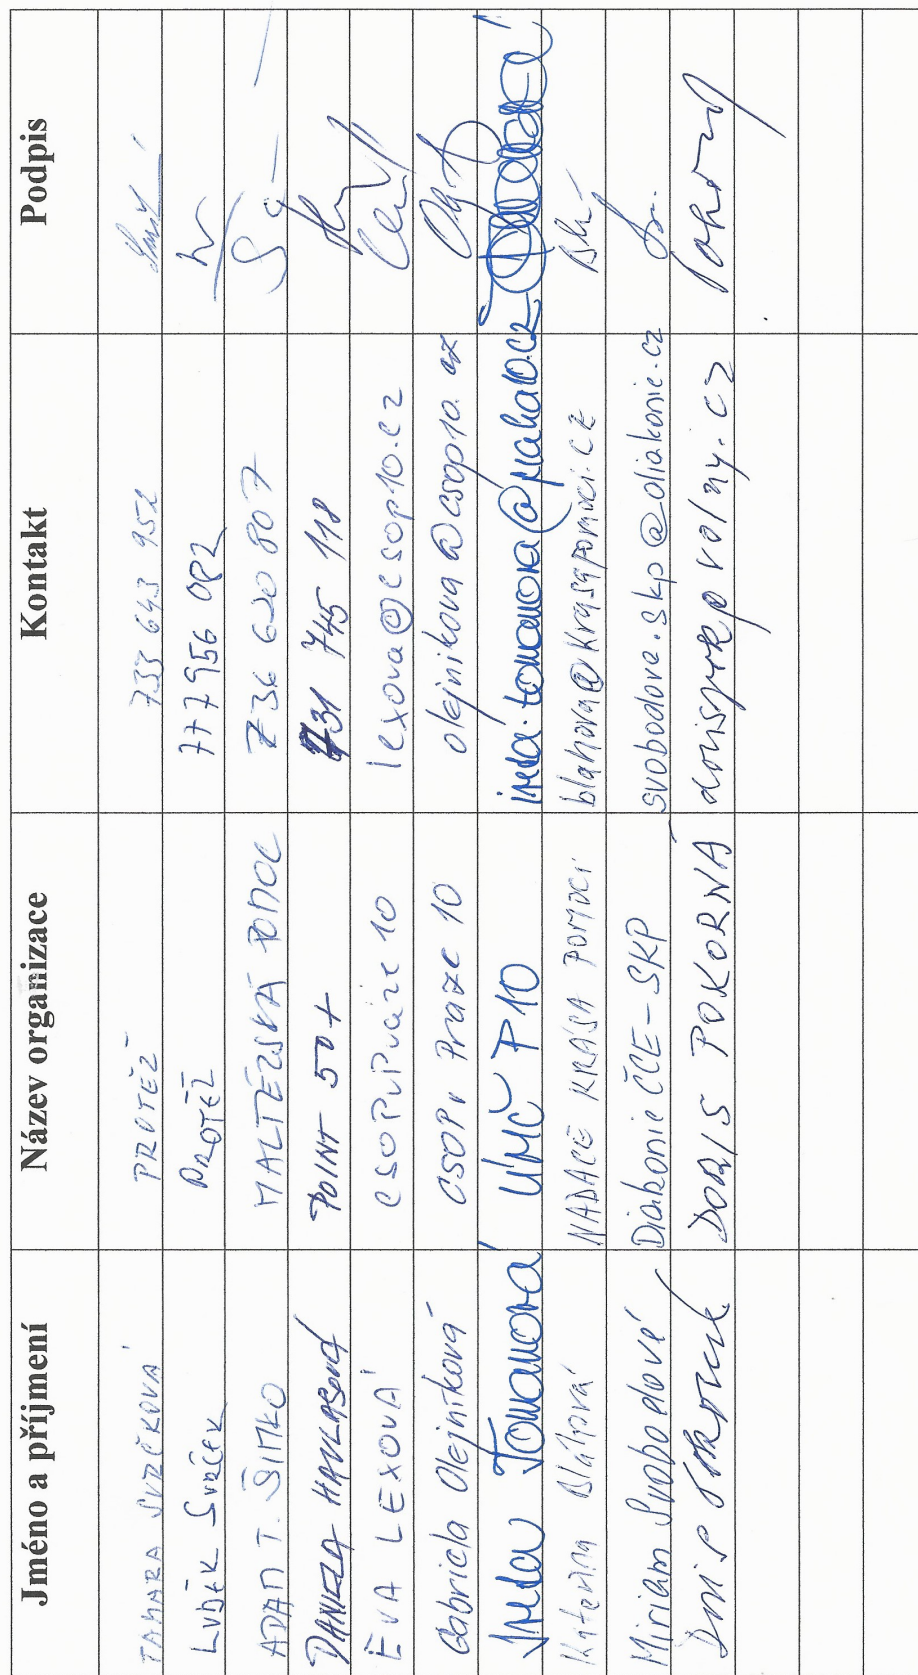 Jméno a příjmení Název organizace Kontakt Podpis
TAMARA SVRČKOVÁ PROTĚŽ 733 643 952
LUDĚK SVRČEK PROTĚŽ 777956 082
ADAM T. ŠIMKO MALTÉZSKÁ POMOC 736 620 807
DANIELA HAVLASOVÁ POINT 50+ 731 745 118
EVA LEXOVÁ CSOP v Praze 10 lexova@csop10.cz
Gabriela Olejníková CSOP v Praze 10 olejnikova@csop10.cz
Tomanová ÚMČ P10
Kateřina Bláhová NADACE KRÁSA POMOCI blahova@krasapomoci.cz
Miriam Svobodová Diakonie ČCE-SKP svobodova.skp@diakonie.cz
DORIS POKORNÁ